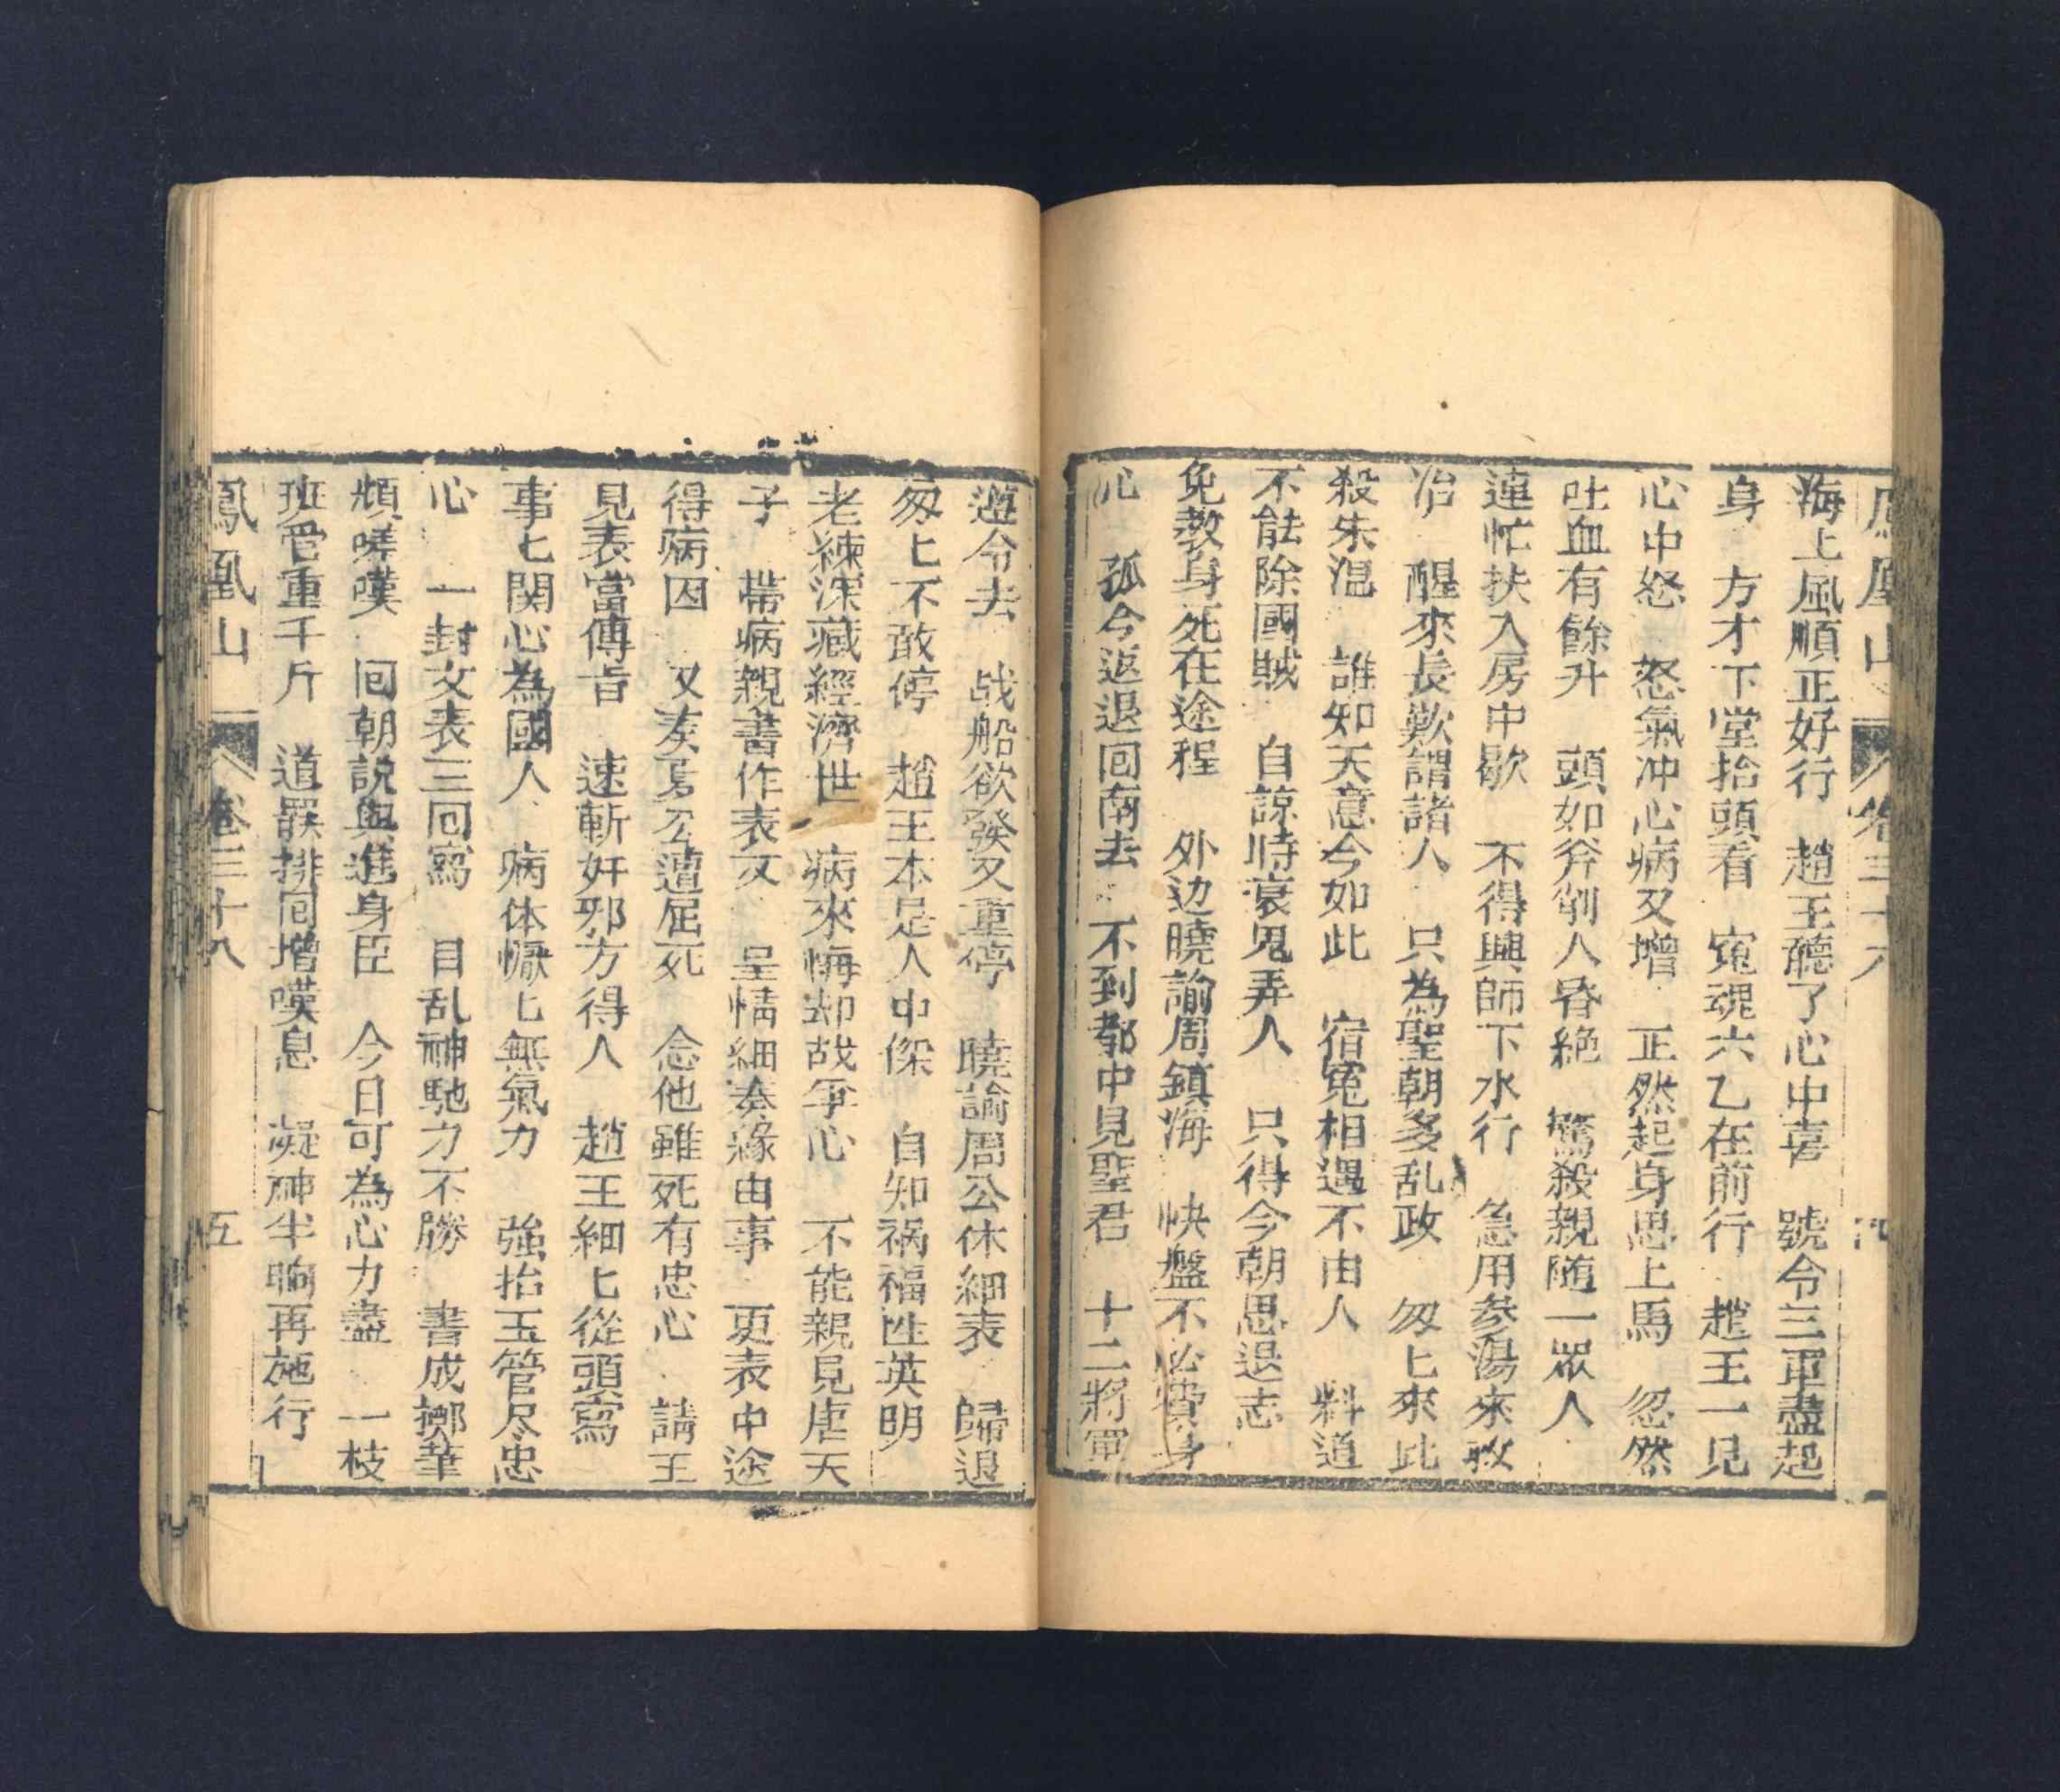 鳳凰山 卷三十八
海上風順正好行 趙王聽了心中喜 號令三軍盡起
身 方才下堂抬頭看 寃魂六乙在前行 趙王一見
心中怒 怒氣冲心病又增 正然起身思上馬 忽然
吐血有餘升 頭如斧劈人昏絶 驚殺親随一眾人
連忙扶入房中歇 不得興師下水行 急用参湯來救
治 醒來長歎謂諸人 只為聖朝多乱政 匆匕來此
殺朱混 誰知天意今如此 宿寃相遇不由人 料道
不能除國賊 自諒時衰鬼弄人 只得今朝思退志
免教身死在途程 外边曉諭周鎮海 快盤不必費身
孤今返退回南去 不到都中見聖君 十二將軍
遵令去 战船欲發又重停 曉諭周公休細表 歸退
匆匕不敢停 趙王本是人中傑 自知祸福性英明
老練深藏經濟世 病來悔却战争心 不能親見唐天
子 帶病親書作表文 呈情細奏緣由事 更表中途
得病因 又奏馬公遭屈死 念他雖死有忠心 請王
見表當傳旨 速斬奸邪方得人 趙王細匕從頭寫
事匕関心為國人 病体懨匕無氣力 強抬玉管尽忠
心 一封文表三回寫 目乱神馳力不勝 書成擲筆
頻嗟嘆 回朝說與進身臣 今日可為心力盡 一枝
班管重千斤 道罷排回增嘆息 凝神半晌再施行
鳳凰山 卷三十八 五